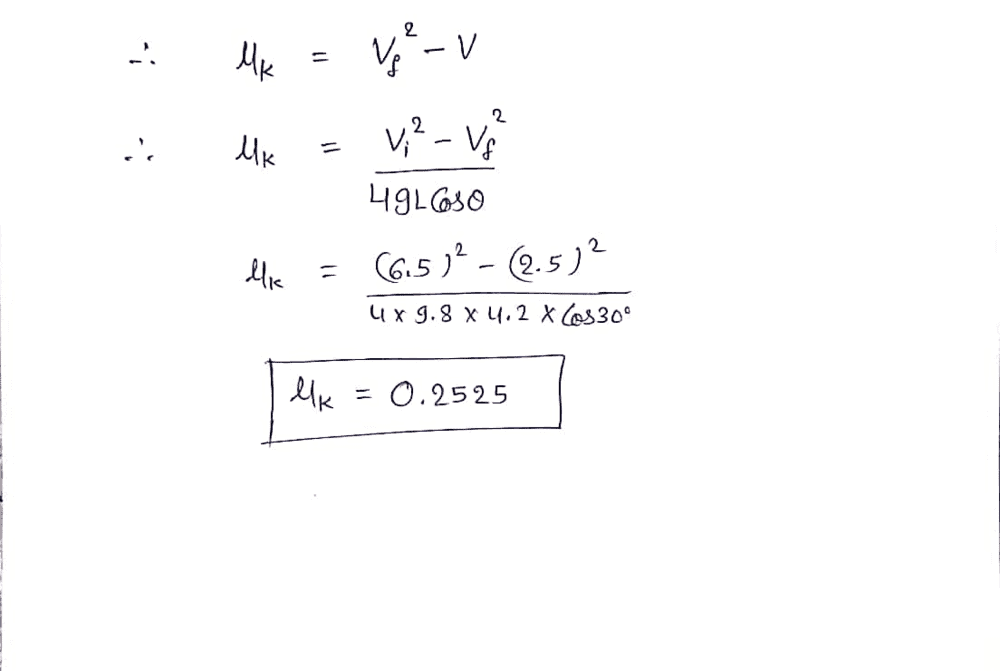 ∴ μk = Vf² − V
∴ μk = Vi² − Vf²
4gLCosθ
μk = (6.5)² − (2.5)²
4 x 9.8 x 4.2 x Cos30°
μk = 0.2525